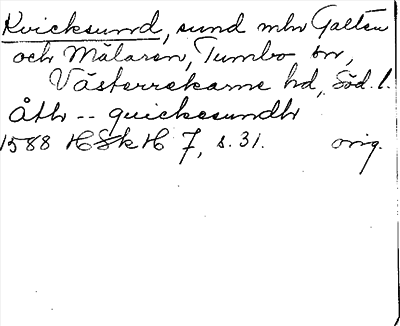 Kvicksund, sund mln Galten
och Mälaren, Tumbo sn,
Västerrekarne hd, Söd. l.
åth -- quickesundh
1588 HSkH 7, s. 31. orig.